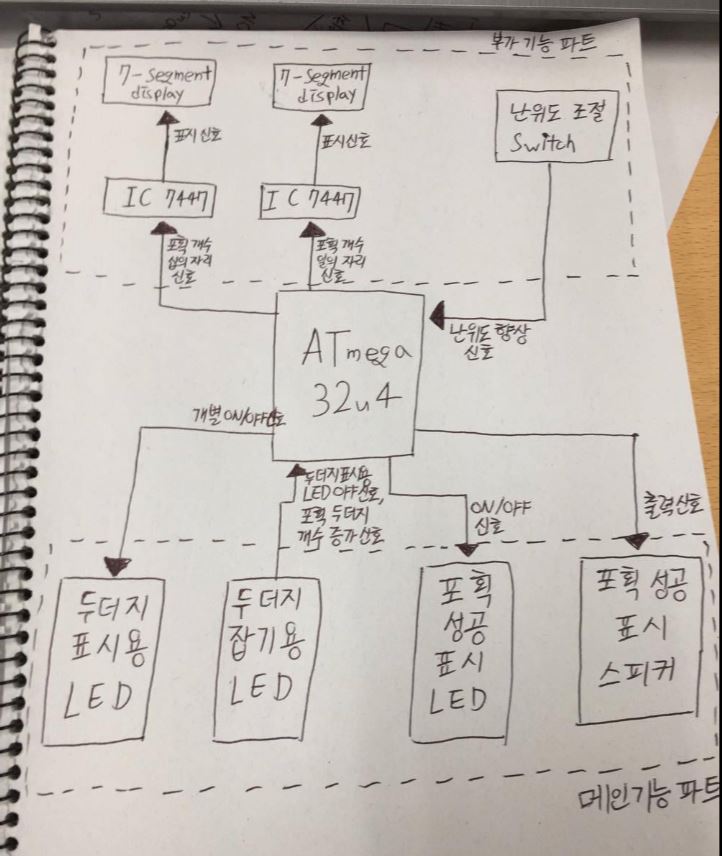 부가기능 파트
7-Segment
display
7-Segment
display
난위도 조절
Switch
표시 신호
표시신호
IC 7447
IC 7447
포획 개수
십의 자리
신호
포획 개수
일의 자리
신호
난위도 향상
신호
ATmega
32u4
개별 ON/OFF신호
두더지표시용
LED OFF신호,
포획 두더지
개수 증가신호
ON/OFF
신호
출력신호
두더지
표시용
LED
두더지
잡기용
LED
포획
성공
표시
LED
포획 성공
표시
스피커
메인기능 파트